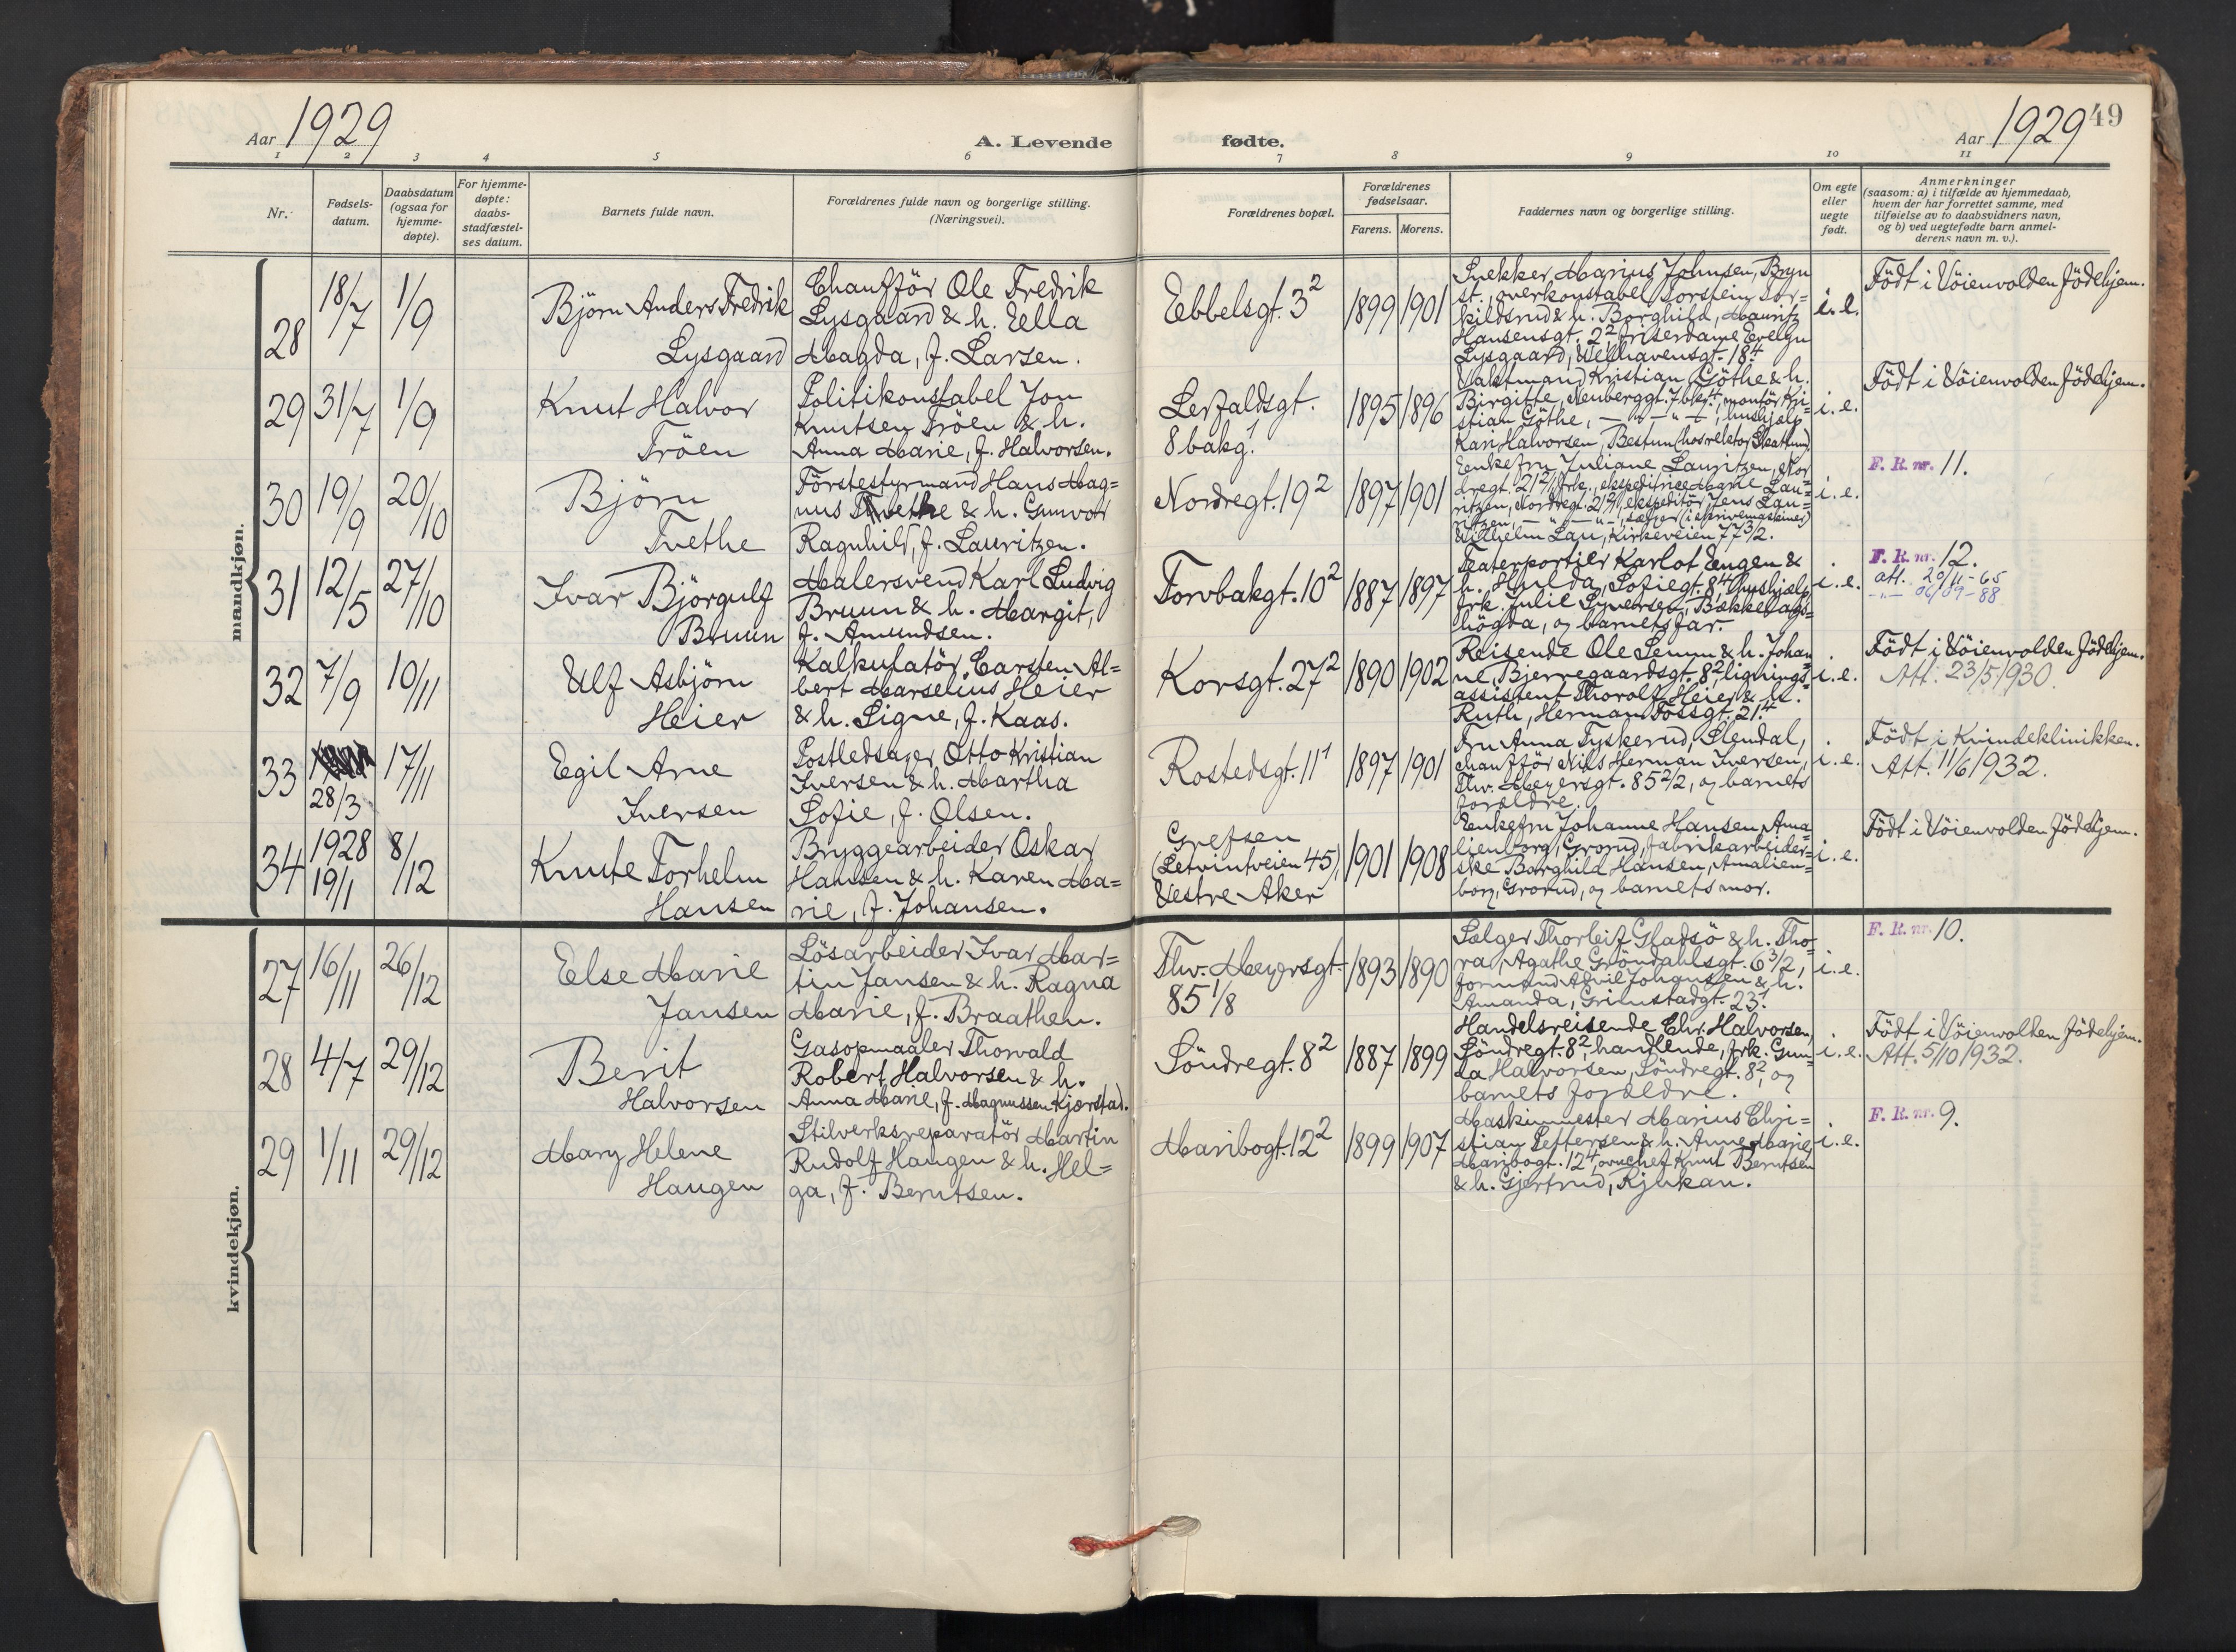 Aar 1929
A. Levende
fødte.
Aar 1929
49
1 2 3 4 5 6 7 8 9 10 11
Nr.
Fødsels-
datum.
Daabsdatum
(ogsaa for
hjemme-
døpte).
For hjemme-
døpte:
daabs-
stadfæstel-
ses datum.
Barnets fulde navn.
Forældrenes fulde navn og borgerlige stilling.
(Næringsvei).
Forældrenes bopæl.
Forældrenes
fødselsaar.
Farens. Morens.
Faddernes navn og borgerlige stilling.
Om egte
eller
uegte
født.
Anmerkninger
(saasom: a) i tilfælde av hjemmedaab,
hvem der har forrettet samme, med
tilføielse av to daabsvidners navn,
og b) ved uegtefødte barn anmel-
derens navn m. v.).
mandkjøn.
28
18/7
1/9
Björn Anders Fredrik
Lysgaard
Chauffør Ole Fredrik
Lysgaard & h. Ella
Magda, f. Larsen.
Ebbelsgt. 3²
1899
1901
Snekker Marius Johnsen, Bryn
st., overkonstabel Torstein Tor=
kildsrud & h. Borghild, Mauritz
Hansensgt. 2², friserdame Evelyn
Lysgaard, Welhavensgt. 18⁴.
i. e.
Født i Vöienvolden Födehjem.
29
31/7
1/9
Knut Halvor
Tröen
Politikonstabel Jon
Knutsen Tröen & h.
Anna Marie, f. Halvorsen.
Lerfaldsgt.
8 bakg.¹
1895
1896
Vaktmand Kristian Göthe & h.
Birgitte, Neuberggt. 7 bkg.⁴, montör Kri=
stian Göthe, — " — " —, hushjælp
Kari Halvorsen, Bestum
i. e.
Født i Vöienvolden Födehjem.
30
19/9
20/10
Björn
Tvethe
Förstestyrmand Hans Mag=
nus Tvethe & h. Gunvor
Ragnhild, f. Lauritzen.
Nordregt. 19²
1897
1901
Enkefru Juliane Lauritzen, Nor
dregt. 21²/1, frk. ekspeditrice Marie Lau=
ritzen, Nordregt. 21²/1, ekspeditör Jens Lau=
ritzen, — " — " —, sælger (i skrivemaskiner)
Wilhelm Lau, Kirkeveien 77³/2.
i. e.
F. R. nr. 11.
31
12/5
27/10
Ivar Björgulf
Bruun
Malersvend Karl Ludvig
Bruun & h. Margit,
f. Amundsen.
Torvbakgt. 10²
1887
1897
Teaterportier Karlot Engen &
h. Hulda, Sofiegt. 8⁴, hushjælp
frk. Julie Syversen, Bækkelags=
högda, og barnets far.
i. e.
F. R. nr. 12.
att. 20/11-65
— " — 06/09-88
32
7/9
10/11
Ulf Asbjörn
Heier
Kalkulatör Carsten Al=
bert Marselius Heier
& h. Signe, f. Kaas.
Korsgt. 27²
1890
1902
Reisende Ole Semm & h. Johan
ne, Bjerregaardsgt. 8², lignings=
assistent Thorolf Heier & h.
Ruth, Herman Fossgt. 21⁴.
i. e.
Født i Vöienvolden Födehjem.
Att. 23/5 1930.
33
28/3
17/11
Egil Arne
Iversen
Postledsager Otto Kristian
Iversen & h. Martha
Sofie, f. Olsen.
Rostedsgt. 11¹
1897
1901
Fru Anna Tyskerud, Slendal,
chauffør Nils Herman Iversen,
Thv. Meyersgt. 85²/2, og barnets
forældre.
i. e.
Født i Kvindeklinikken.
Att. 11/6 1932.
34
1928
19/1
8/12
Knute Torhelm
Hansen
Bryggearbeider Oskar
Hansen & h. Karen Ma=
rie, f. Johansen.
Grefsen
(Letvintveien 45),
Vestre Aker
1901
1908
Enkefru Johanne Hansen, Ama
lienborg, Grorud, fabrikarbeider=
ske Borghild Hansen, Amalien=
borg, Grorud, og barnets mor.
i. e.
Født i Vöienvolden Födehjem.
kvindekjøn.
27
16/11
26/12
Else Marie
Jansen
Lösarbeider Ivar Mar=
tin Jansen & h. Ragna
Marie, f. Braathen.
Thv. Meyersgt.
85 1/8
1893
1890
Sælger Thorleif Gladsö & h. Tho=
ra, Agathe Gröndahlsgt. 6³/2,
formand Alvil Johansen & h.
Amanda, Grimstadgt. 23¹.
i. e.
F. R. nr. 10.
28
4/7
29/12
Berit
Halvorsen
Gasopmaaler Thorvald
Robert Halvorsen & h.
Anna Marie, f. Magnussen Kjørstad.
Söndregt. 8²
1887
1899
Handelsreisende Chr. Halvorsen,
Söndregt. 8², handlende, frk. Gun=
da Halvorsen, Söndregt. 8², og
barnets forældre.
i. e.
Født i Vöienvolden Födehjem.
Att. 5/10 1932.
29
1/11
29/12
Mary Helene
Haugen
Stilverksreparatör Martin
Rudolf Haugen & h. Hel=
ga, f. Berntsen.
Maribogt. 12²
1899
1907
Maskinmester Marius Chri=
stian Pettersen & h. Anne Marie,
Maribogt. 12⁴, ovnchef Knut Berntsen
& h. Gjertrud, Rjukan.
i. e.
F. R. nr. 9.